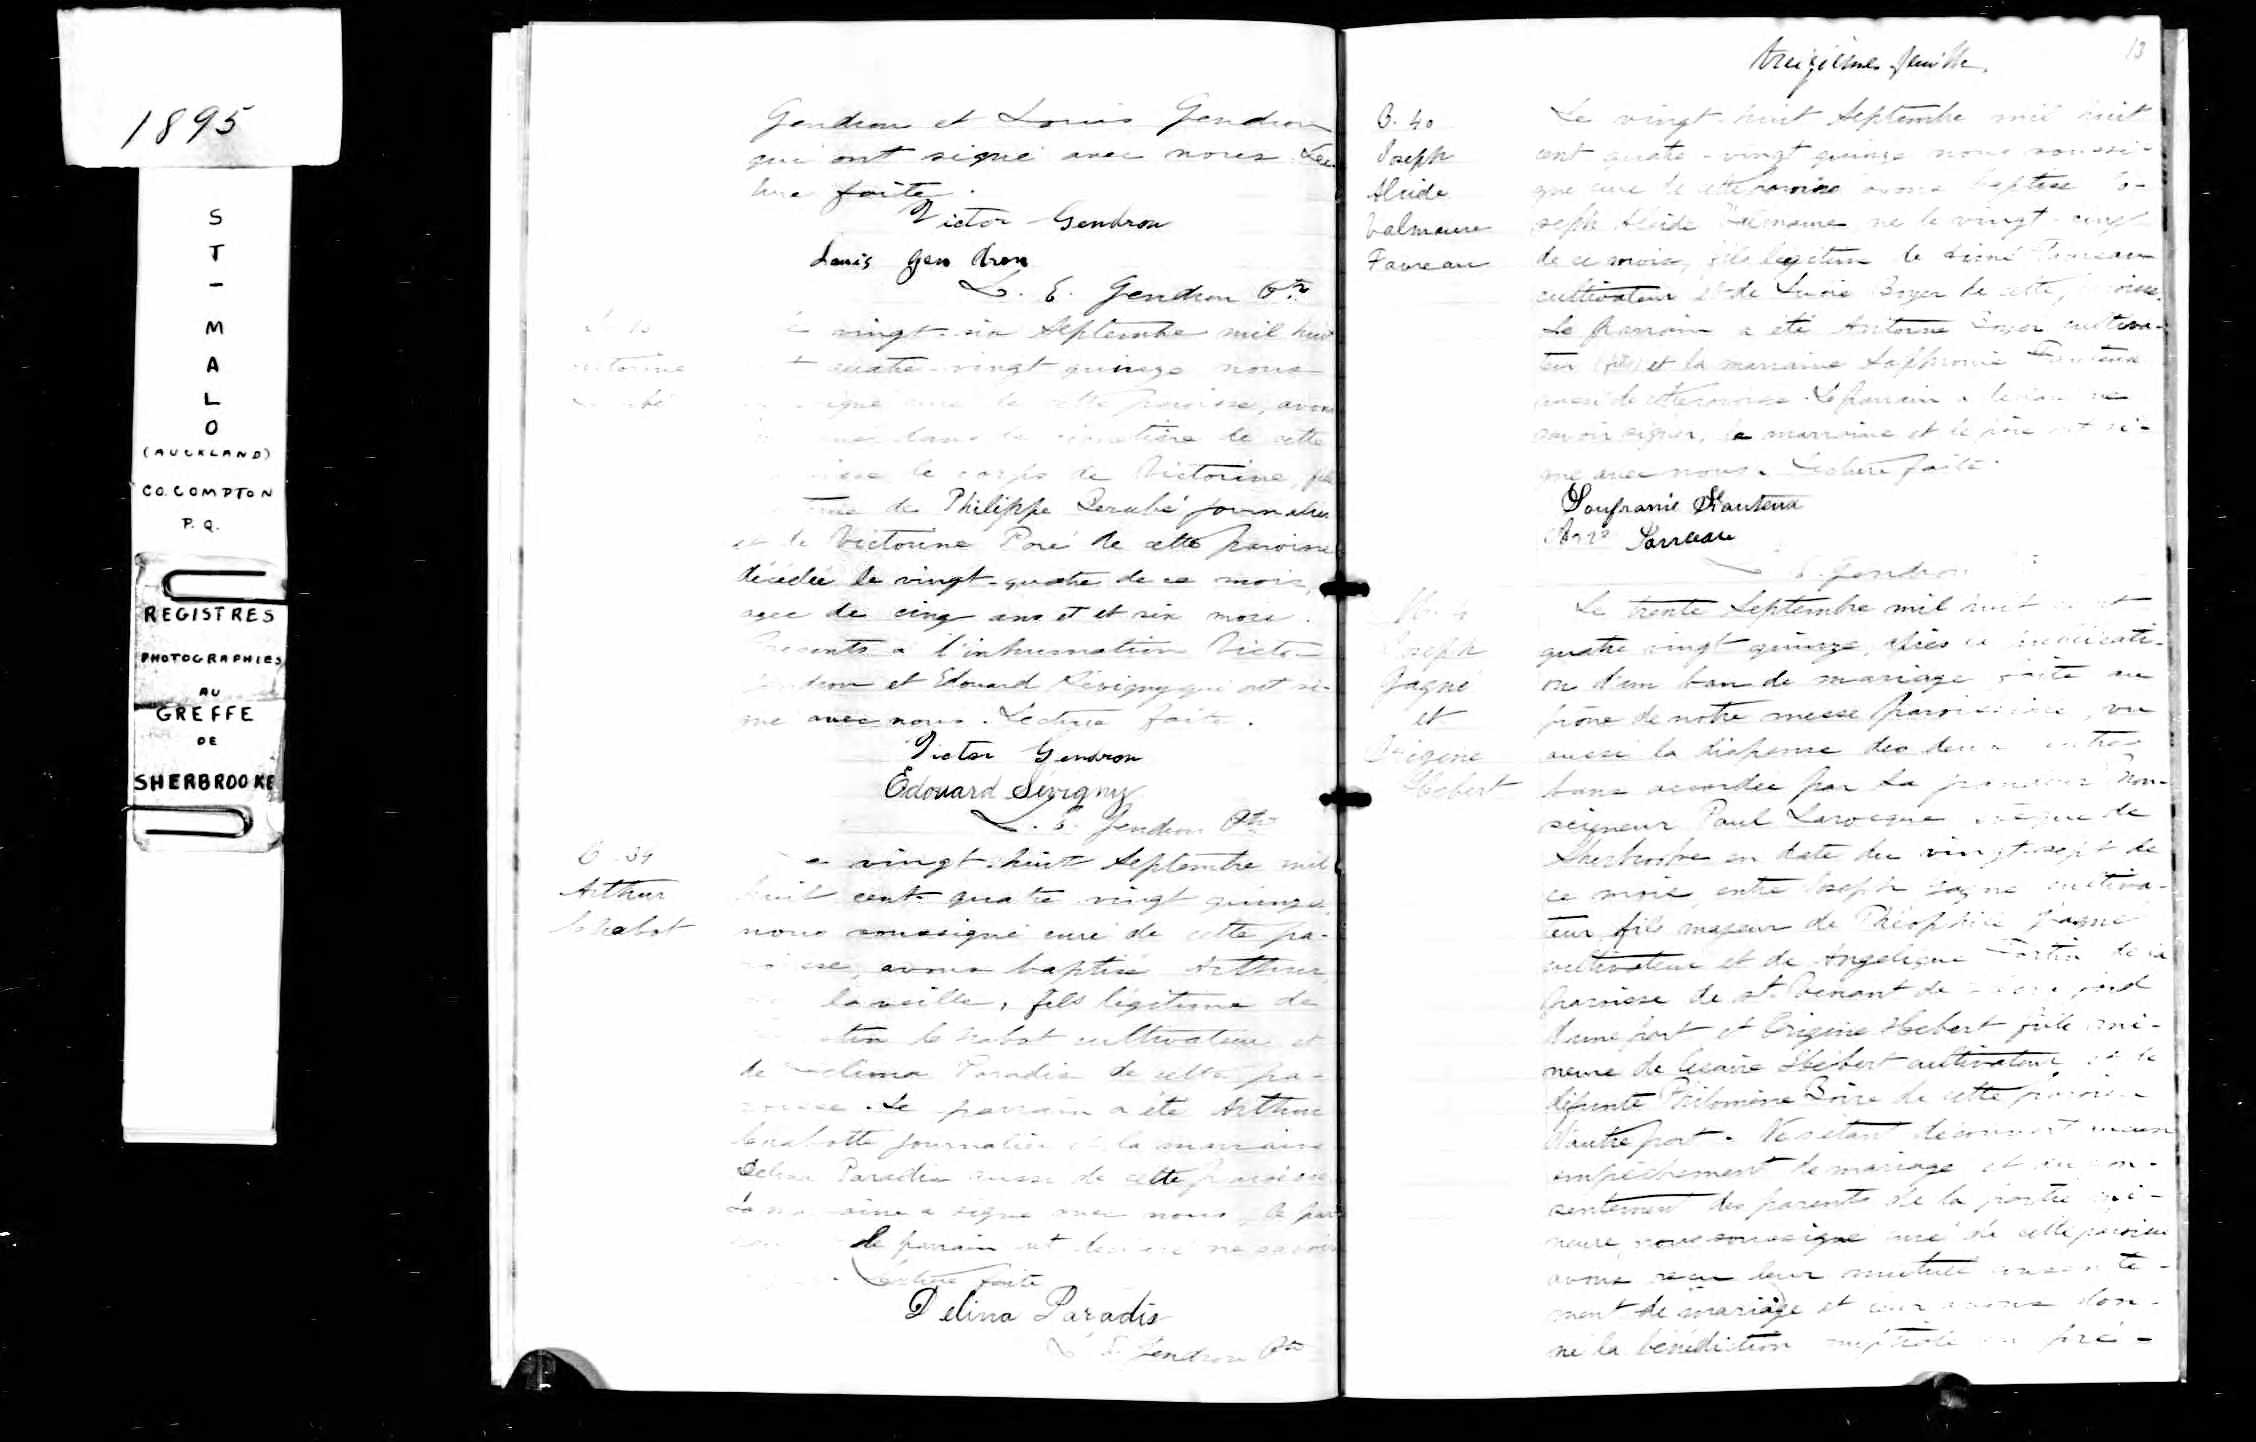 1895
ST-MALO
(AUCKLAND)
CO. COMPTON
P. Q.
REGISTRES
PHOTOGRAPHIES
AU
GREFFE
DE
SHERBROOKE
Gendron et Louis Gendron
qui ont signé avec nous. Lec
ture faite.
Victor Gendron
Louis gendron
L. E. Gendron Ptre
vingt-six Septembre mil huit
quatre-vingt quinze nous
curé de cette paroisse, avons
dans le cimetière de cette
le corps de Victorine, fille
de Philippe Berubé journalier
et de Victorine Poré de cette paroisse
décédée le vingt-quatre de ce mois,
agee de cinq ans et et six mois.
Presents a l'inhumation Victor
Gendron et Edouard Sévigny qui ont si-
gné avec nous. Lecture faite.
Victor Gendron
Edouard Sévigny
L. E. Gendron Ptre
B. 39
Arthur
Chabot
Le vingt-huit Septembre mil
huit cent quatre vingt quinze,
nous soussigné curé de cette pa-
roisse, avons baptisé Arthur,
la veille, fils légitime de
Chabot cultivateur et
de Paradis de cette pa-
roisse. Le parrain a été Arthur
journalier et la marraine
Delina Paradis aussi de cette paroisse
La marraine a signé avec nous, le
le parrain ont déclaré ne savoir
Lecture faite
Delina Paradis
L. E. Gendron Ptre
treizième feuille.
13
B. 40
Joseph
Alcide
Valmaure
Favreau
Le vingt-huit Septembre mil huit
cent quatre-vingt quinze nous soussi-
gné curé de cette paroisse avons baptisé Jo-
seph Alcide Valmaure né le vingt-cinq
de ce mois, fils legitime de Favreau
cultivateur et de Boyer de cette paroisse.
Le parrain a été Antoine Boyer cultiva-
teur et la marraine
aussi de cette paroisse. Le parrain a declaré ne
savoir signer, la marraine et le père ont si-
gné avec nous. Lecture faite.
L. E. Gendron
M. 4
Joseph
Gagné
et
Origène
Hebert
Le trente Septembre mil huit cent
quatre vingt quinze, après la publicati-
on d'un ban de mariage faite au
prône de notre messe paroissiale, vu
aussi la dispense des deux autres
bans accordée par Sa grandeur Mon-
seigneur Paul Larocque évêque de
Sherbrooke en date du vingt-sept de
ce mois, entre Joseph Gagné cultiva-
teur fils majeur de Théophile Gagné
cultivateur et de Angelique Fortin de la
paroisse de St. Venant de
d'une part et Origène Hebert fille mi-
neure de Hébert cultivateur et de
défunte Philomène Boire de cette paroisse
d'autre part. Ne s'étant découvert aucun
empêchement de mariage et du con-
sentement des parents de la partie mi-
neure, nous soussigné curé de cette paroisse
avons reçu leur mutuel consente-
ment de mariage et leur avons don-
né la bénédiction nuptiale en pré-